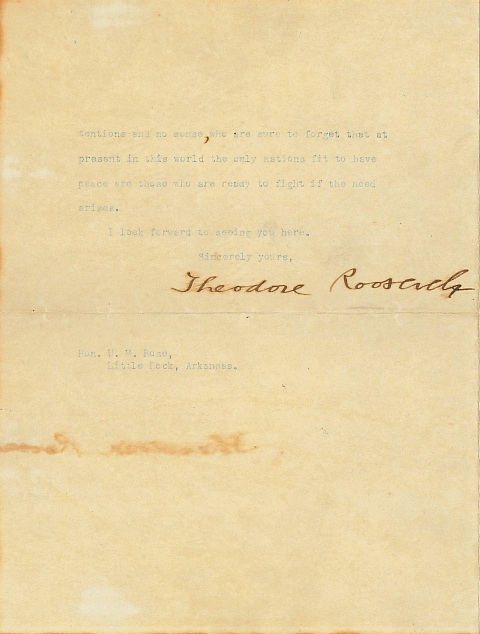 tentions and no sense, who are sure to forget that at
present in this world the only nations fit to have
peace are those who are ready to fight if the need
arises.
I look forward to seeing you here.
Sincerely yours,
Theodore Roosevelt
Hon. U. M. Rose,
Little Rock, Arkansas.